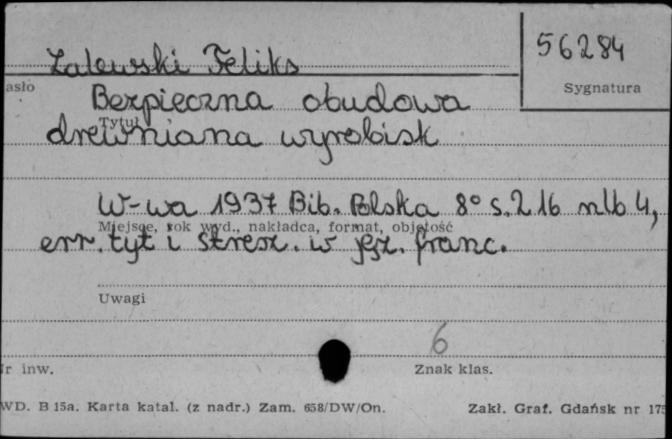 56284
Zalewski Feliks
asło
Sygnatura
Bezpieczna obudowa
Tytuł
drewniana wyrobisk
W-wa 1937 Bib. Polska 8° s. 216 nlb 4,
Miejsce, rok wyd., nakładca, format, objętość
err. tyt i stresz. w jęz. franc.
Uwagi
6
r inw.
Znak klas.
WD. B 15a. Karta katal. (z nadr.) Zam. 658/DW/On.
Zakł. Graf. Gdańsk nr 175